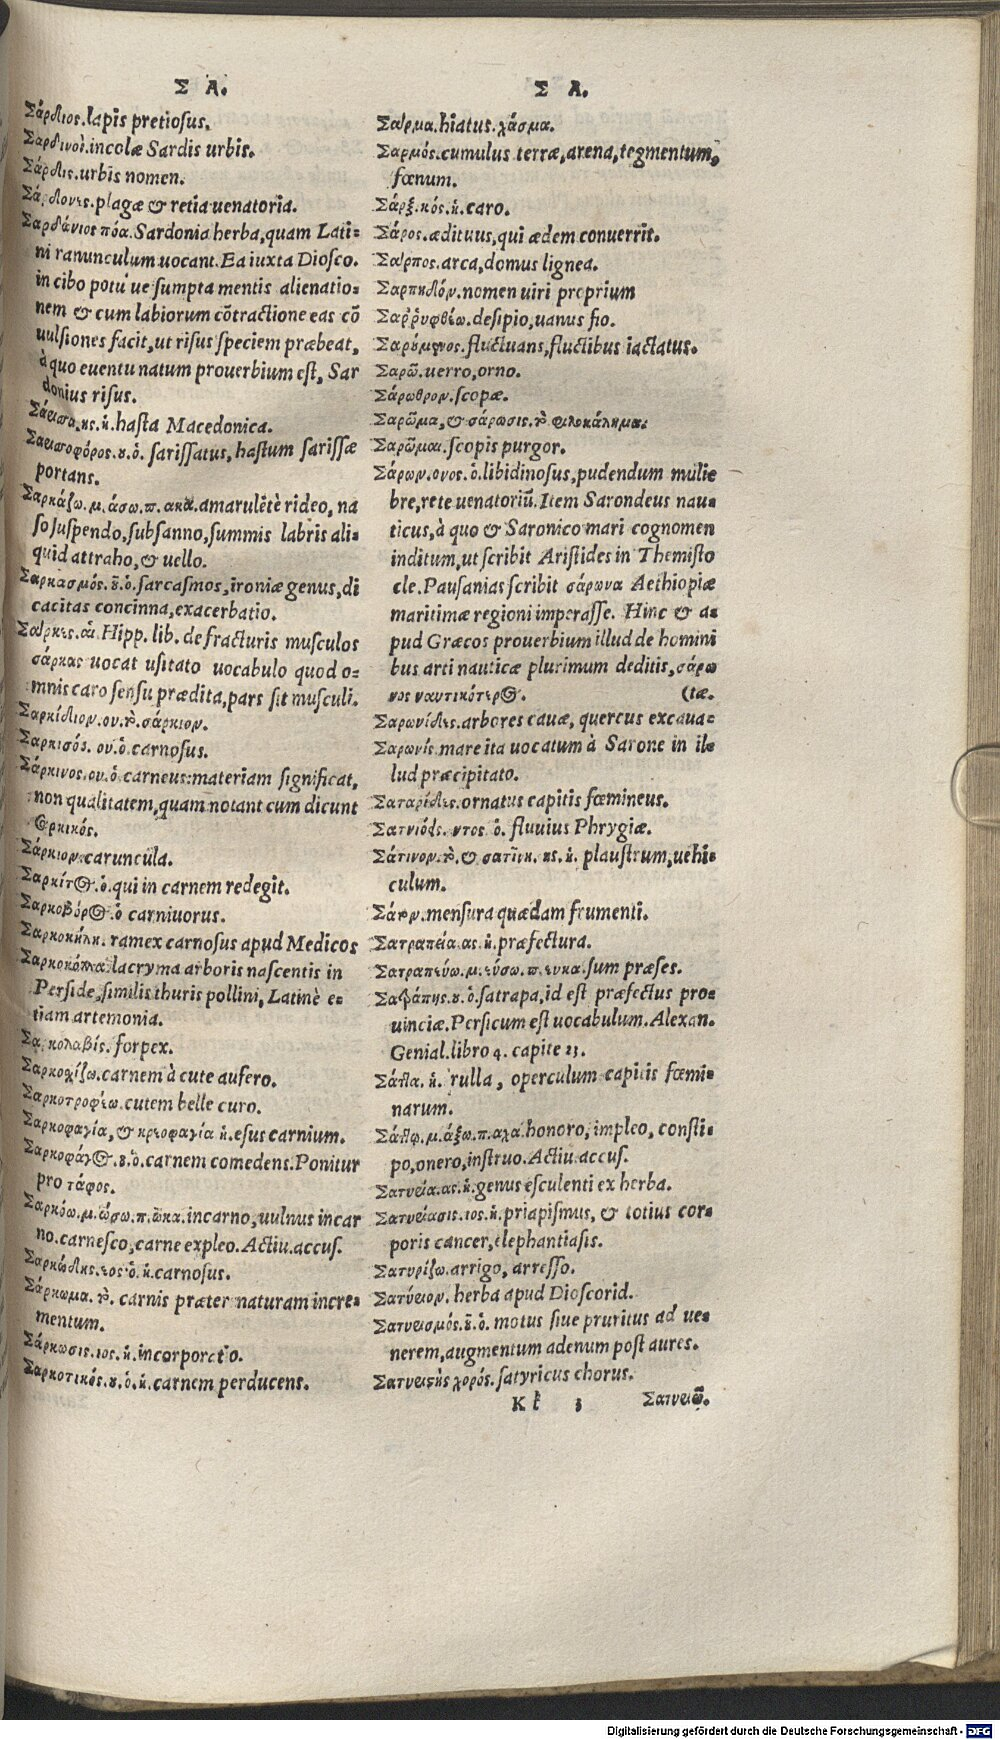 Σ Α.
Σάρδιος.lapis pretiosus.
Σαρδινοὶ.incolæ Sardis urbis.
Σάρδις.urbis nomen.
Σάρδονες.plagæ & retia uenatoria.
Σαρδάνιος πόα.Sardonia herba,quam Lati=
ni ranunculum uocant.Ea iuxta Diosco.
in cibo potú ue sumpta mentis alienatio=
nem & cum labiorum cōtractione eas cō
uulsiones facit,ut risus speciem præbeat,
à quo euentu natum prouerbium est, Sar
donius risus.
Σάρισα.ης.ἡ.hasta Macedonica.
Σαρισοφόρος.ου.ὁ. sarissatus, hastum sarissæ
portans.
Σαρκάζω.μ.άσω.π.ακα.amarulētè rideo, na
so suspendo,subsanno,summis labris ali=
quid attraho,& uello.
Σαρκασμός.οῦ.ὁ.sarcasmos,ironiæ genus,di
cacitas concinna,exacerbatio.
Σάρκες.αἱ Hipp.lib.de fracturis musculos
σάρκας uocat usitato uocabulo quod o=
mnis caro sensu prædita,pars sit musculi.
Σαρκίδιον.ου.τὸ.σάρκιον.
Σαρκισός. ου.ὁ.carnosus.
Σάρκινος.ου.ὁ.carneus:materiam significat,
non qualitatem,quam notant cum dicunt
σαρκικός.
Σάρκιον.caruncula.
Σαρκίτος.ὁ.qui in carnem redegit.
Σαρκοβόρος.ὁ carniuorus.
Σαρκοκήλη. ramex carnosus apud Medicos
Σαρκοκόλλα.lacryma arboris nascentis in
Perside,similis thuris pollini, Latinè e=
tiam artemonia.
Σαρκολαβίς. forpex.
Σαρκοχίζω.carnem à cute aufero.
Σαρκοτροφέω.cutem belle curo.
Σαρκοφαγία,& κρεοφαγία ἡ.esus carnium.
Σαρκοφάγος.ου.ὁ.carnem comedens.Ponitur
pro τάφος.
Σαρκόω.μ.ώσω.π.ωκα.incarno,uulnus incar
no.carnesco,carne expleo.Actiu.accus.
Σαρκώδης.εος.ὁ.ἡ.carnosus.
Σάρκωμα.τὸ. carnis præter naturam incre=
mentum.
Σάρκωσις.ιος.ἡ.incorporatio.
Σαρκοτικός.ου.ὁ.ἡ.carnem perducens.
Σ Α.
Σάρμα.hiatus.χάσμα.
Σαρμός.cumulus terræ,arena,tegmentum,
fœnum.
Σάρξ.κός.ἡ.caro.
Σάρος.ædituus,qui ædem conuerrit.
Σάρπος.arca,domus lignea.
Σαρπηδόν.nomen uiri proprium
Σαῤῥυφθέω.desipio,uanus fio.
Σαρύμφος.fluctuans,fluctibus iactatus.
Σαρῶ.uerro,orno.
Σάρωθρον.scopæ.
Σαρῶμα,& σάρωσις.τὸ φιλοκάλημα.
Σαρῶμαι.scopis purgor.
Σάρων.ονος.ὁ.libidinosus,pudendum mulie
bre,rete uenatoriū.Item Sarondeus nau=
ticus,à quo & Saronico mari cognomen
inditum,ut scribit Aristides in Themisto
cle.Pausanias scribit σάρωνα Aethiopiæ
maritimæ regioni imperasse. Hinc & a=
pud Græcos prouerbium illud de homini
bus arti nauticæ plurimum deditis,σάρω
νος ναυτικότερος. (tæ.
Σαρωνίδες.arbores cauæ, quercus excaua=
Σαρωνίς.mare ita uocatum à Sarone in il=
lud præcipitato.
Σαταρίδες.ornatus capitis fœmineus.
Σατνιόεις.ντος ὁ. fluuius Phrygiæ.
Σάτινον.τὸ.& σατίνη. ης.ἡ. plaustrum,uehi=
culum.
Σάτον.mensura quædam frumenti.
Σατραπεία.ας.ἡ.præfectura.
Σατραπεύω.μ.εύσω.π.ευκα.sum præses.
Σατράπης.ου.ὁ.satrapa,id est præfectus pro=
uinciæ.Persicum est uocabulum.Alexan.
Genial.libro 4. capite 23.
Σάττα. ἡ. rulla, operculum capitis fœmi=
narum.
Σάττω.μ.άξω.π.αχα.honoro,impleo, consti=
po,onero,instruo.Actiu.accus.
Σατυεία.ας.ἡ.genus esculenti ex herba.
Σατυείασις.ιος.ἡ.priapismus, & totius cor=
poris cancer,elephantiasis.
Σατυρίζω.arrigo, arresso.
Σατύειον. herba apud Dioscorid.
Σατυεισμός.οῦ.ὁ. motus siue pruritus ad ue=
nerem,augmentum adenum post aures.
Σατυειςὴς χορός.satyricus chorus.
Kk 3 Σατυειῶ.
Digitalisierung gefördert durch die Deutsche Forschungsgemeinschaft - DFG